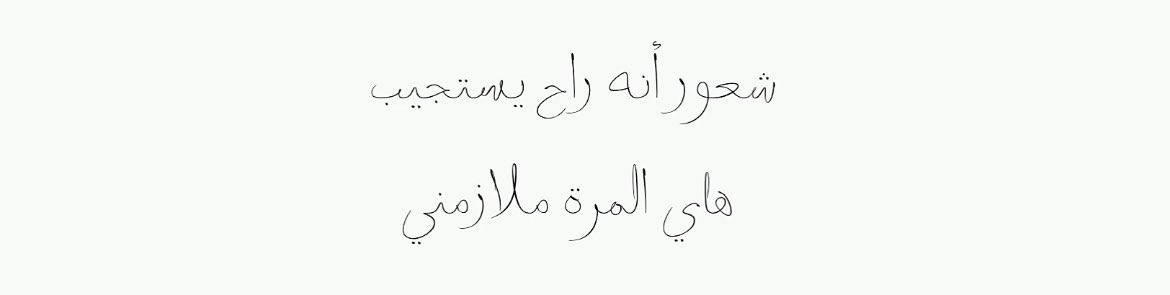 شعور أنه راح يستجيب
هاي المرة ملازمني